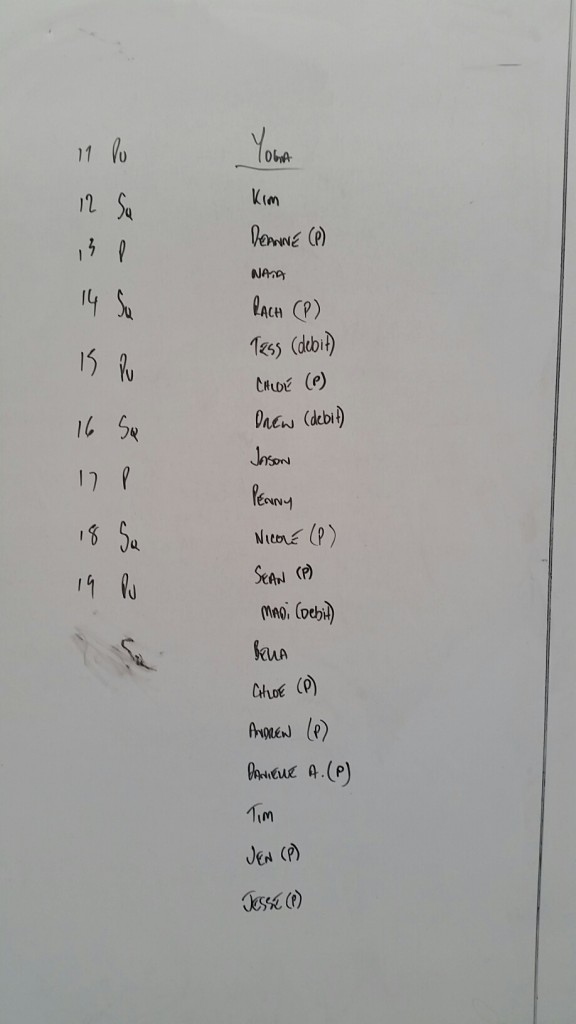 11 Pu
12 Sq
13 P
14 Sq
15 Pu
16 Sq
17 P
18 Sq
19 Pu
Sq
YOGA
KIM
DEANNE (P)
RACH (P)
TESS (debit)
CHLOE (P)
DREW (debit)
JASON
PENNY
NICOLE (P)
SEAN (P)
MADi (Debit)
BELLA
CHLOE (P)
ANDREW (P)
DANIELLE A. (P)
TIM
JEN (P)
JESSE (P)